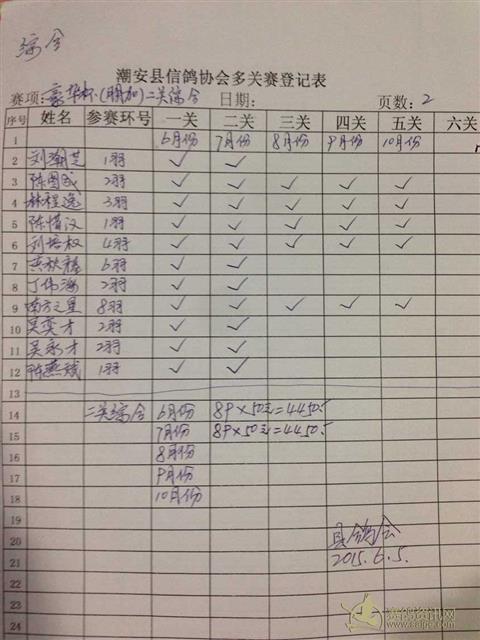 综合
潮安县信鸽协会多关赛登记表
赛项:豪华杯(附加)二关综合 日期: 页数:2
序号 姓名 参赛环号 一关 二关 三关 四关 五关 六关
1 6月份 7月份 8月份 9月份 10月份
2 1羽 ✓ ✓
3 陈图武 2羽 ✓ ✓ ✓ ✓ ✓
4 林程逸 3羽 ✓ ✓ ✓ ✓ ✓
5 陈惜汉 1羽 ✓ ✓ ✓ ✓ ✓
6 刘培权 4羽 ✓ ✓ ✓ ✓ ✓
7 6羽 ✓ ✓
8 丁伟 2羽 ✓ ✓
9 南方之星 8羽 ✓ ✓ ✓ ✓ ✓
10 吴奕才 2羽 ✓ ✓
11 吴永才 2羽 ✓ ✓
12 陈燕斌 1羽 ✓ ✓
13
14 二关综合 6月份 89×50元=4450元
15 7月份 89×50元=4450元
16 8月份
17 9月份
18 10月份
19
20 县鸽会
21 2015.6.5.
22
23
24
赛鸽资讯网
www.saige.com